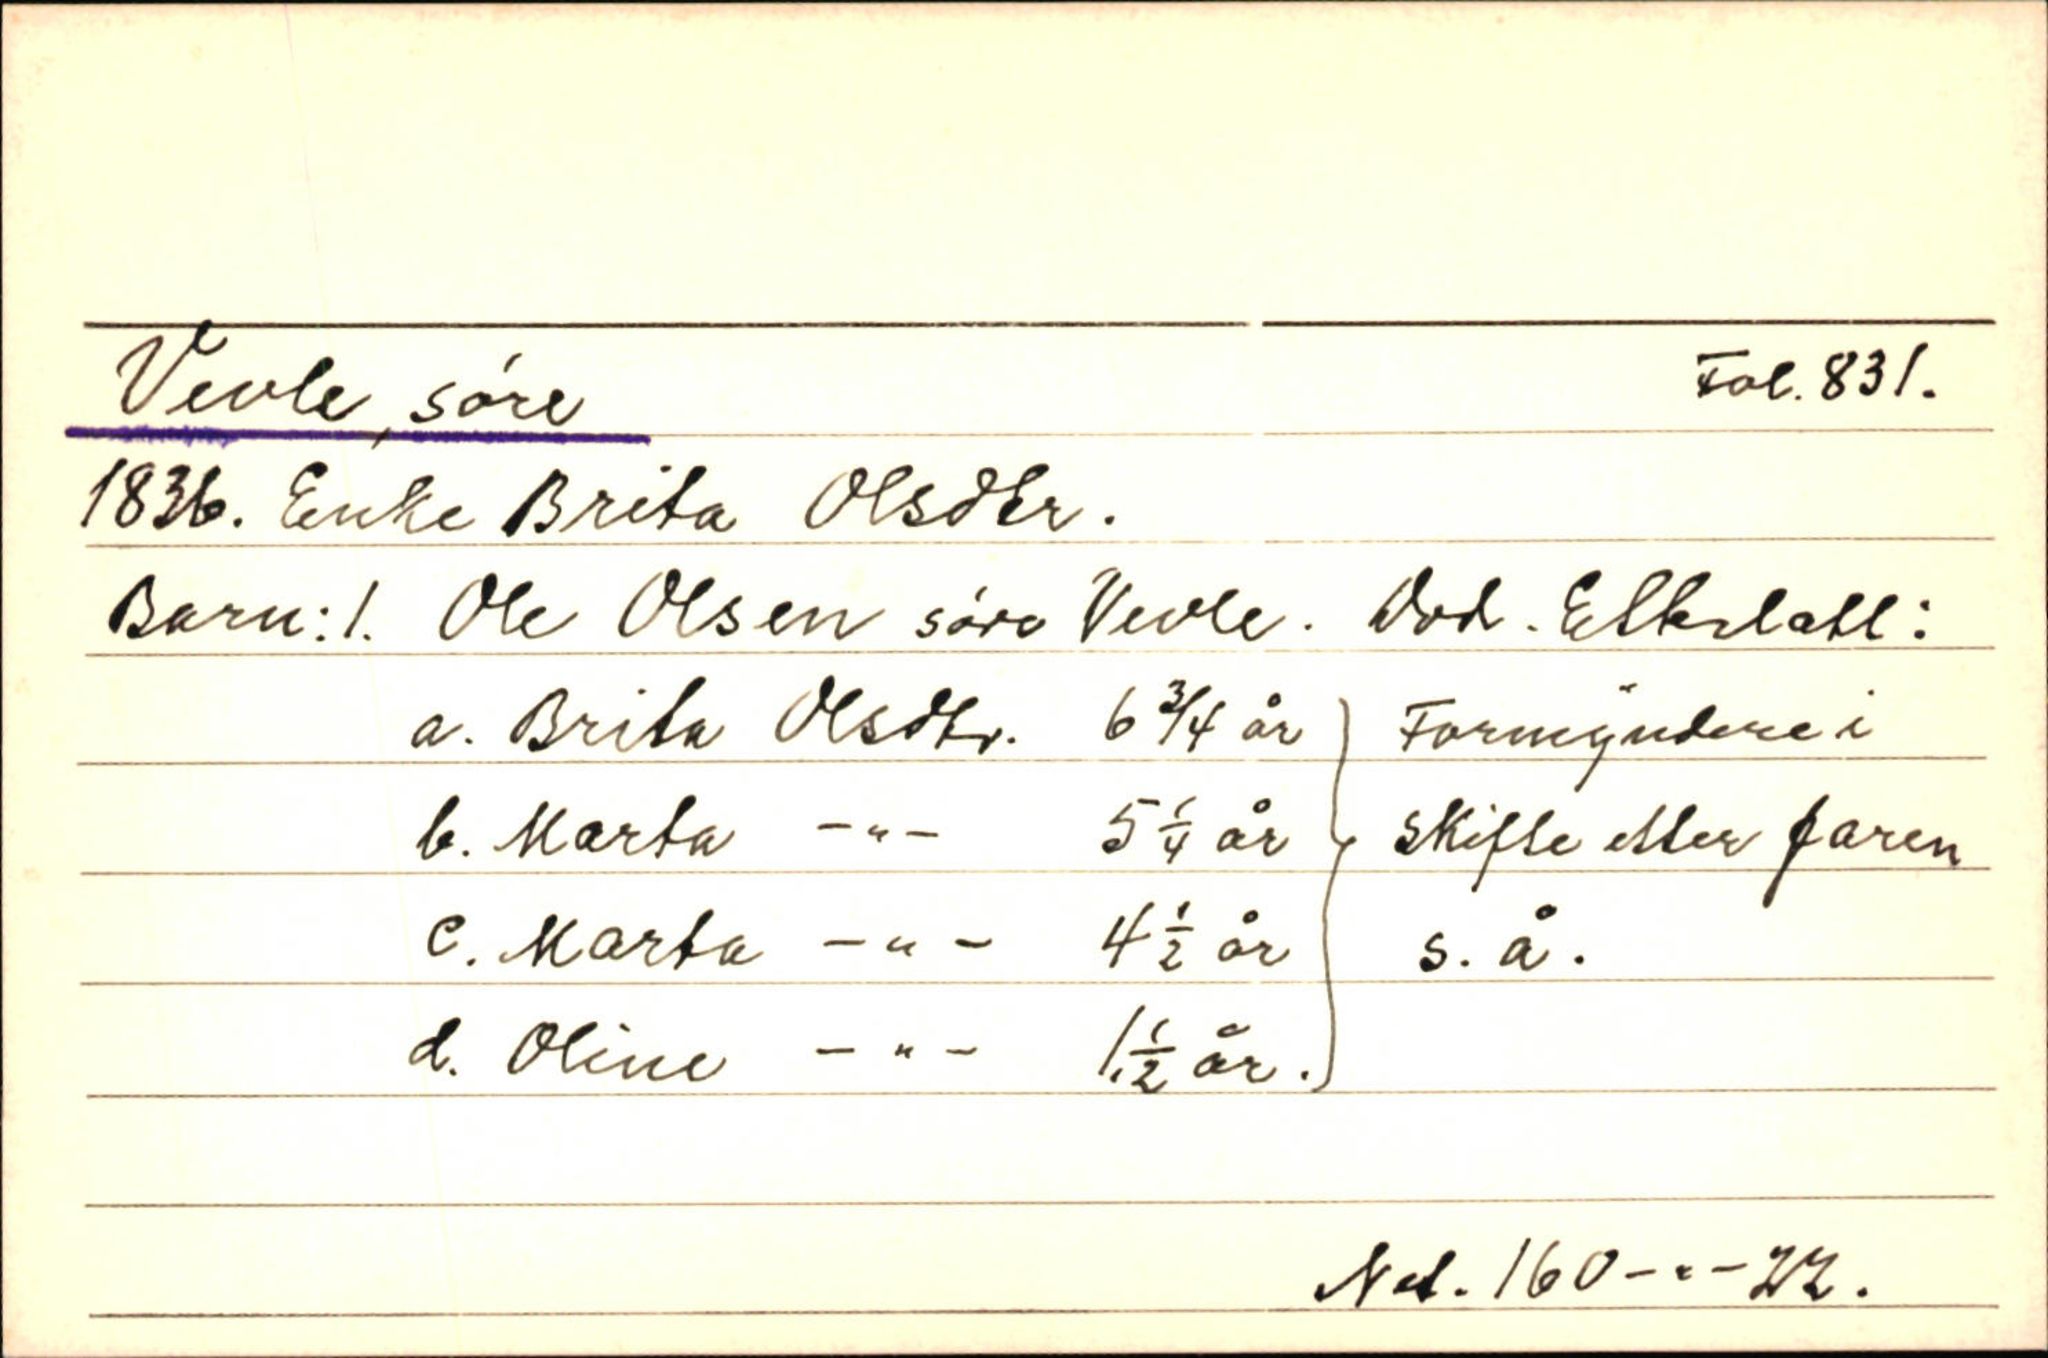 Vevle, søre Fol. 831.
1836. Enke Brita Olsdtr.
Barn: 1. Ole Olsen søre Vevle. Død. Etterlatt:
a. Brita Olsdtr. 6 3/4 år Formyndere i
b. Marta -"- 5 1/4 år skifte etter faren
c. Marta -"- 4 1/2 år s. å.
d. Oline -"- 1 1/2 år.
Net. 160-"-22.